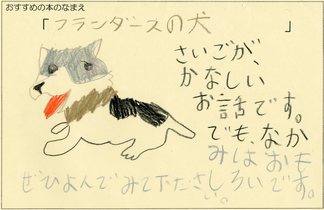 おすすめの本のなまえ
「フランダースの犬」
さいごが、
かなしい
お話です。
でも、なか
みはおも
しろいです。
ぜひよんでみて下ださい。